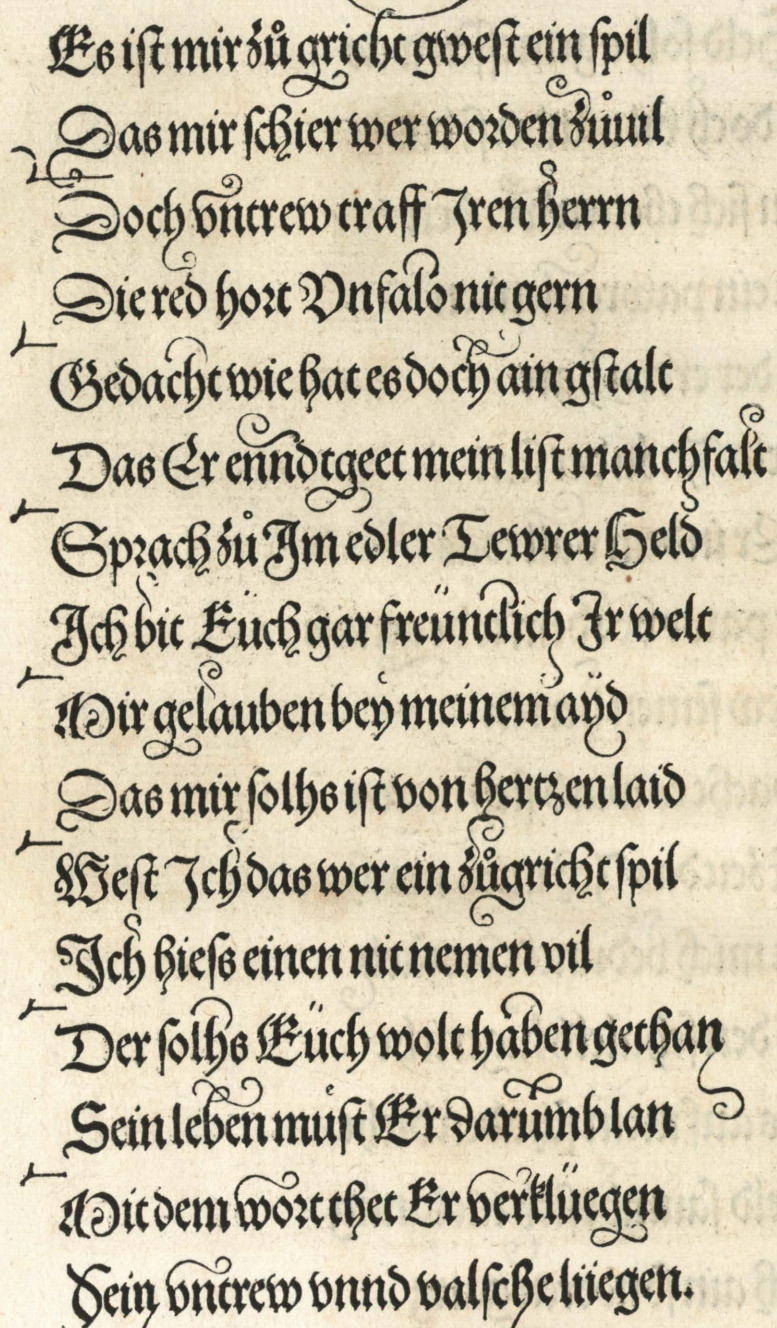 Es ist mir zů gricht gwest ein spil
Das mir schier wer worden zůuil
Doch vntrew traff Iren herrn
Die red hort Vnfalo nit gern
Gedacht wie hat es doch ain gstalt
Das Er enndtgeet mein list manchfalt
Sprach zů Im edler Tewrer Held
Ich bit Eüch gar freüntlich Ir welt
Mir gelauben bey meinem ayd
Das mir solhs ist von hertzen laid
West Ich das wer ein zůgricht spil
Ich hiess einen nit nemen vil
Der solhs Eüch wolt haben gethan
Sein leben můst Er darumb lan
Mit dem wort thet Er verklüegen
Sein vntrew vnnd valsche lüegen.